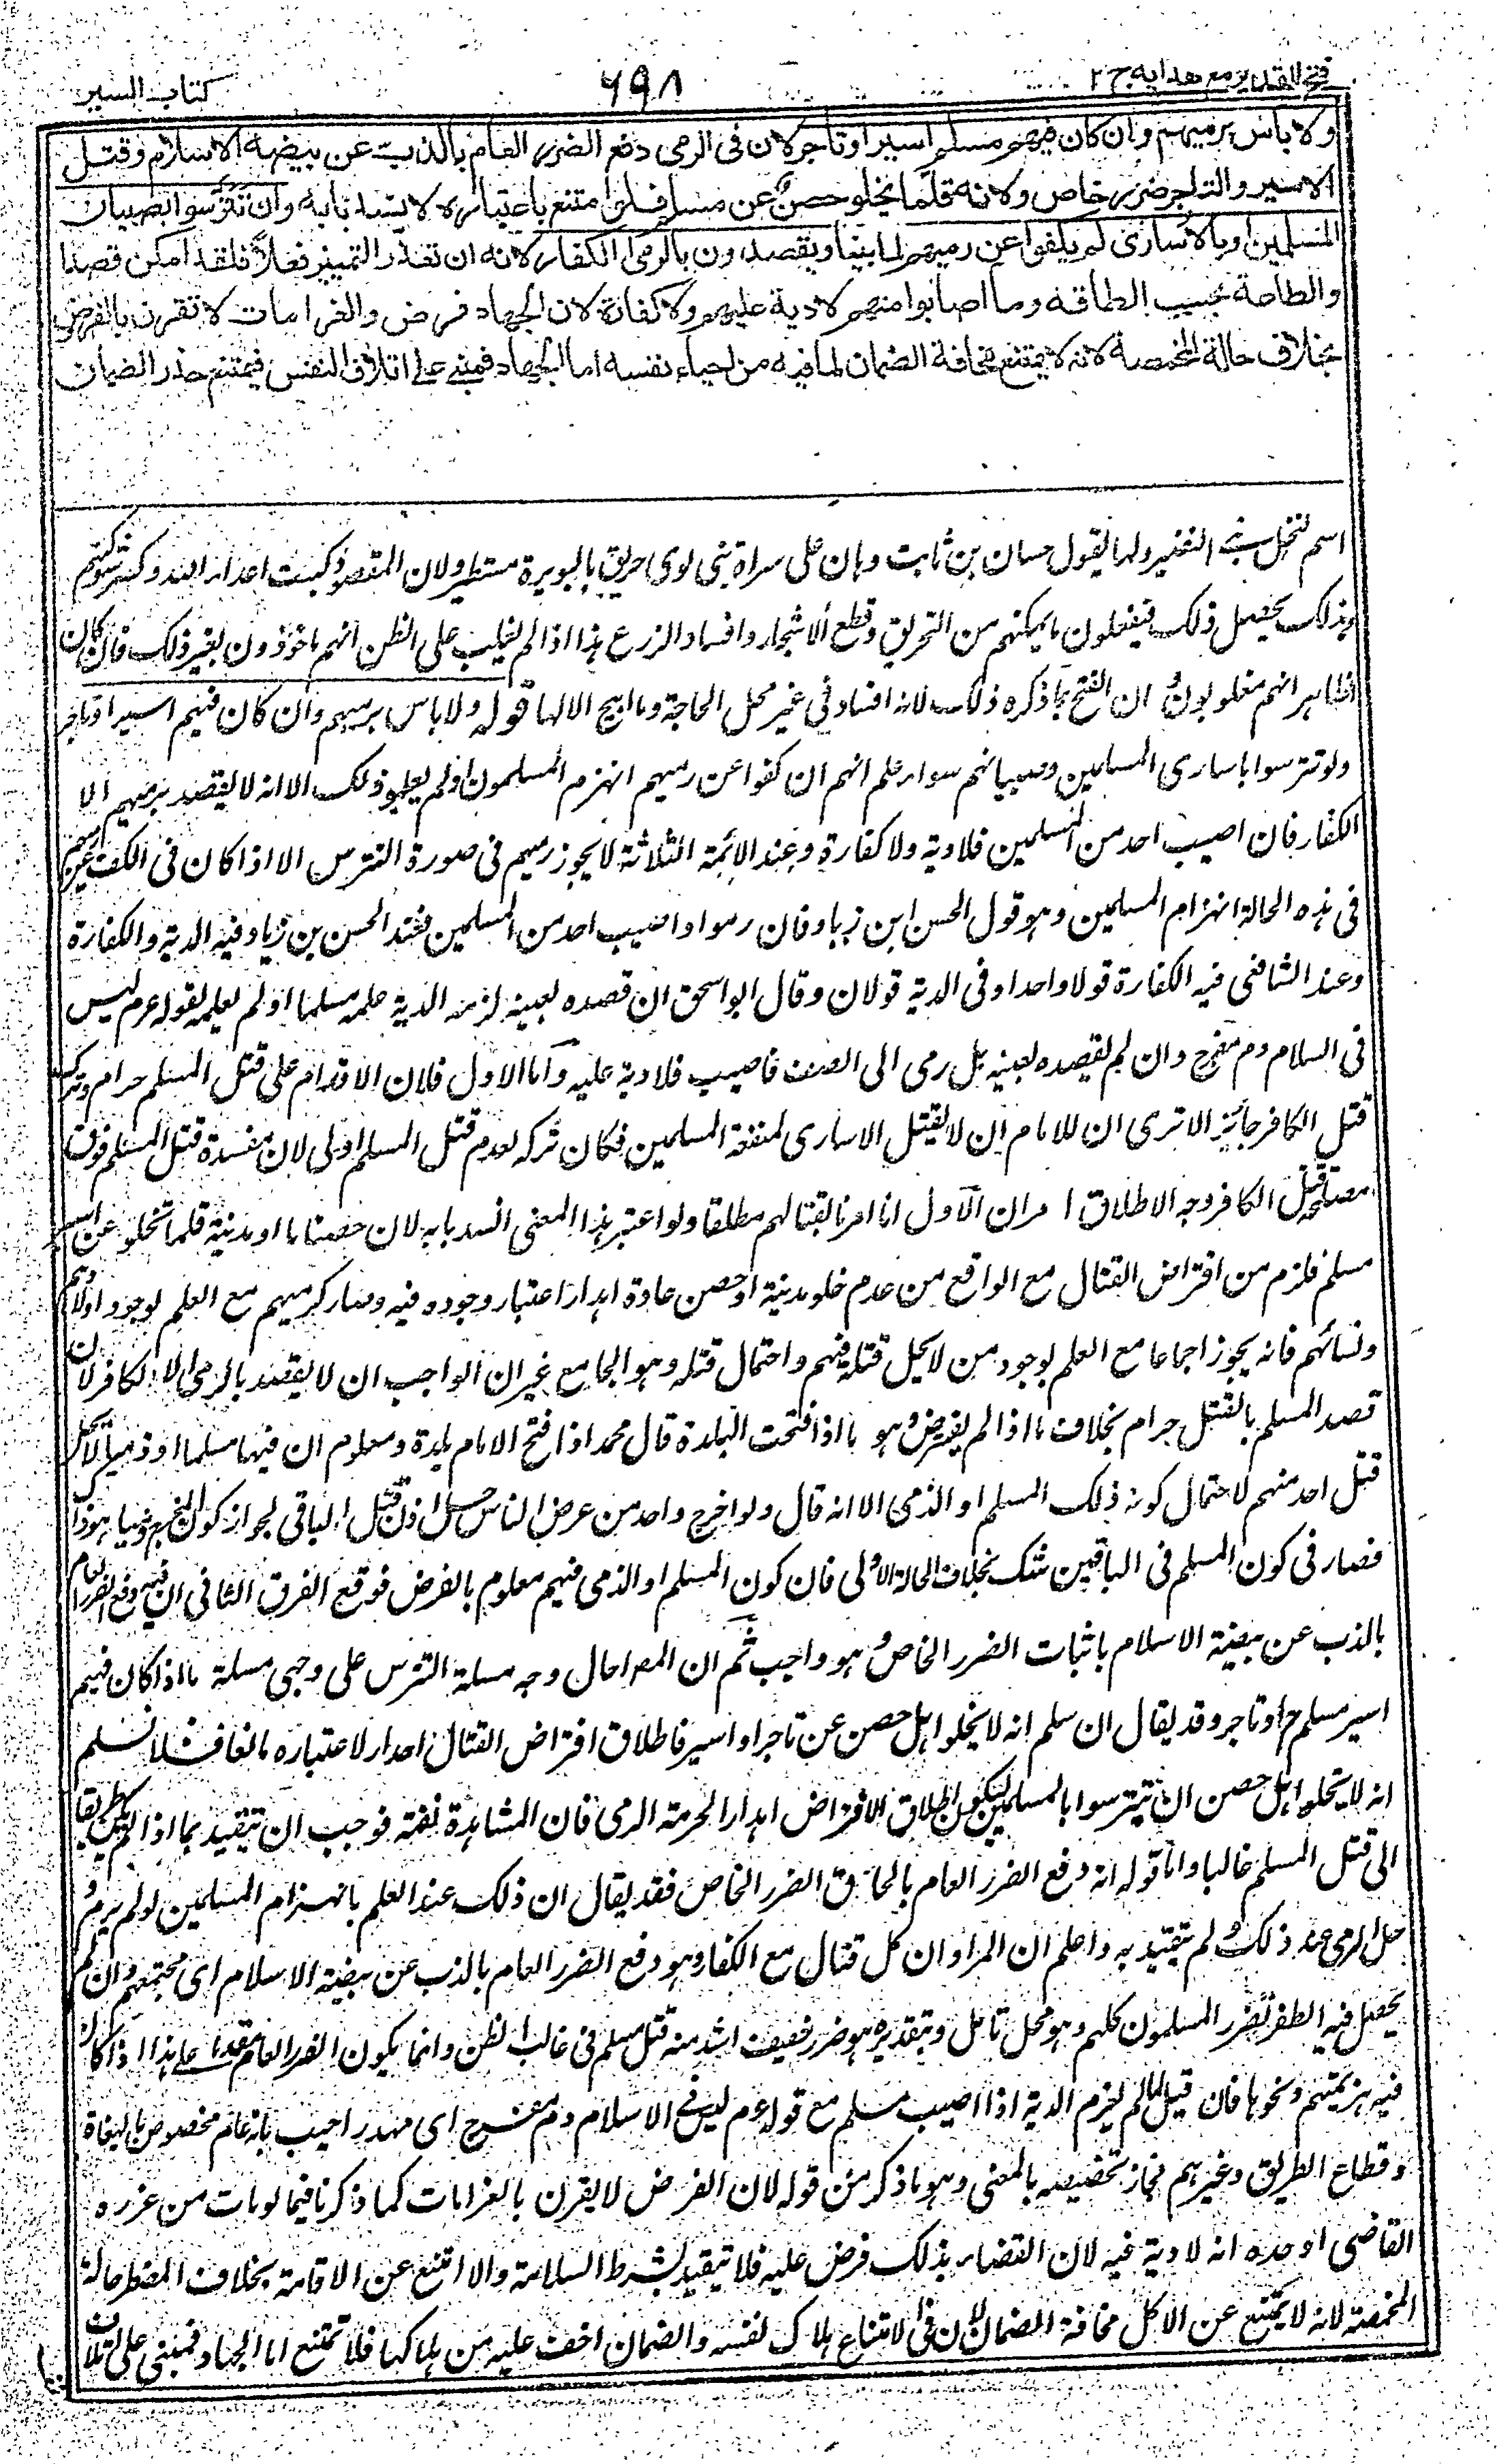 فتح القدير مع هدايه ج ٢
٦٩٨
كتاب السير
ولا باس برميهم وان كان فيهم مسلم اسير او تاجر لان في الرمي دفع الضرر العام بالذب عن بيضة الاسلام وقتل
الاسير والتاجر ضرر خاص ولانه قلما يخلو حصن عن مسلم فلو امتنع باعتباره لانسد بابه وان تترسوا بصبيان
المسلمين او بالاسارى لم يكفوا عن رميهم لما بينا ويقصدون بالرمي الكفار لانه ان تعذر التمييز فعلا فلقد امكن قصدا
والطاعة بحسب الطاقه وما اصابوا منهم لا دية عليهم ولا كفارة لان الجهاد فرض والغرامات لا تقرن بالفروض
بخلاف حالة المخمصة لانه لا يمتنع مخافة الضمان لما فيه من احياء نفسه اما الجهاد فمبني على اتلاف النفس فيمتنع حذر الضمان
اسم لنخل بني النضير ولها يقول حسان بن ثابت وهان على سراة بني لوى حريق بالبويرة مستطير ولان المقصود كبت اعداء الله وكسر شوكتهم
وبذلك يحصل ذلك فيفعلون ما يمكنهم من التحريق وقطع الاشجار وافساد الزرع هذا اذا لم يغلب على الظن انهم ماخوذون بغير ذلك فان كان
الظاهر انهم مغلوبون وان الفتح باد كره ذلك لانه افساد في غير محل الحاجة وما ابيح الا لها قوله ولا باس برميهم وان كان فيهم اسير او تاجر
ولو تترسوا باسارى المسلمين وصبيانهم سواء علم انهم ان كفوا عن رميهم انهزم المسلمون او لم يعلموا ذلك الا انه لا يقصد برميهم الا
الكفار فان اصيب احد من المسلمين فلا دية ولا كفارة وعند الائمة الثلاثة لا يجوز رميهم في صورة التترس الا اذا كان في الكف عن رميهم
في هذه الحالة انهزام المسلمين وهو قول الحسن ابن زياد فان رموا واصيب احد من المسلمين فعند الحسن بن زياد فيه الدية والكفارة
وعند الشافعي فيه الكفارة قولا واحدا وفي الدية قولان وقال ابو اسحق ان قصده بعينه لزمه الدية علمه مسلما او لم يعلمه لقوله عم ليس
في السلام دم مفرج وان لم يقصده بعينه بل رمى الى الصف فاصيب فلا دية عليه واما الاول فلان الاقدام على قتل المسلم حرام وترك
قتل الكافر جائز الا ترى ان للامام ان لا يقتل الاسارى لمنفعة المسلمين فكان تركه لعدم قتل المسلم اولى لان مفسدة قتل المسلم فوق
مصلحة قتل الكافر وجه الاطلاق امران الاول انا امرنا بقتالهم مطلقا ولو اعتبر هذا المعنى انسد بابه لان حصنا ما او مدينة قلما تخلو عن اسير
مسلم فلزم من افتراض القتال مع الواقع من عدم خلو مدينة او حصن عادة اهدار اعتبار وجوده فيه وصار كرميهم مع العلم بوجود اولادهم
ونسائهم فانه يجوز اجماعا مع العلم بوجود من لا يحل قتله فيهم واحتمال قتله وهو الجامع غير ان الواجب ان لا يقصد بالرمي الا الكافر لان
قصد المسلم بالقتل حرام بخلاف ما اذا لم يفرض وهو ما اذا فتحت البلدة قال محمد اذا فتح الامام بلدة ومعلوم ان فيها مسلما او ذميا لا يحل
قتل احد منهم لاحتمال كونه ذلك المسلم او الذمي الا انه قال ولو اخرج واحد من عرض الناس حل اذن قتل الباقي لجواز كون المخرج هو ذاك
فصار في كون المسلم في الباقين شك بخلاف الحالة الاولى فان كون المسلم او الذمي فيهم معلوم بالفرض فوقع الفرق الثاني ان فيه دفع الضرر العام
بالذب عن بيضة الاسلام باثبات الضرر الخاص وهو واجب ثم ان المص احال وجه مسلة التترس على وجهي مسلة ما اذا كان فيهم
اسير مسلم او تاجر وقد يقال ان سلم انه لا يخلو اهل حصن عن تاجر او اسير فاطلاق افتراض القتال اهدار لاعتباره مانعا فلا نسلم
انه لا يخلوا اهل حصن ان يتترسوا بالمسلمين ليكون اطلاق الافتراض اهدارا لحرمة الرمي فان المشاهدة نفته فوجب ان يتقيد بما اذا لم يكن طريقا
الى قتل المسلم غالبا واما قوله انه دفع الضرر العام بالحاق الضرر الخاص فقد يقال ان ذلك عند العلم بانهزام المسلمين لو لم يرم و
حل الرمي عند ذلك ولم يتقيد به واعلم ان المراد ان كل قتال مع الكفار وهو دفع الضرر العام بالذب عن بيضة الاسلام اى مجتمعهم وان لم
يحصل فيه الظفر تضرر المسلمون كلهم وهو محل تامل وبتقديره هو ضرر خفيف اشد منه قتل مسلم في غالب الظن وانما يكون الضرر العام مقدما على هذا اذا كان
فيه هزيمتهم ونحوها فان قيل لما لم يلزم الدية اذا اصيب مسلم مع قوله عم ليس في الاسلام دم مفرج اى مهدر اجيب بانه عام مخصوص بالبغاة
وقطاع الطريق وغيرهم فجاز تخصيصه بالمعنى وهو ما ذكر من قوله لان الفرض لا يقرن بالغرامات كما ذكرنا فيما لو مات من عزره
القاضي او حده انه لا دية فيه لان القضاء بذلك فرض عليه فلا يتقيد بشرط السلامة والا امتنع عن الاقامة بخلاف المضطر حالة
المخمصة لانه لا يمتنع عن الاكل مخافة الضمان لان في الامتناع هلاك نفسه والضمان اخف عليه من هلاكها فلا تمتنع اما الجهاد فمبني على اتلاف